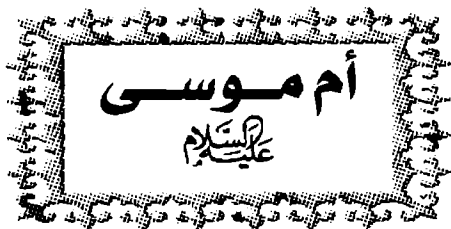 أم موسى
عَلَيْهِ السَّلَام